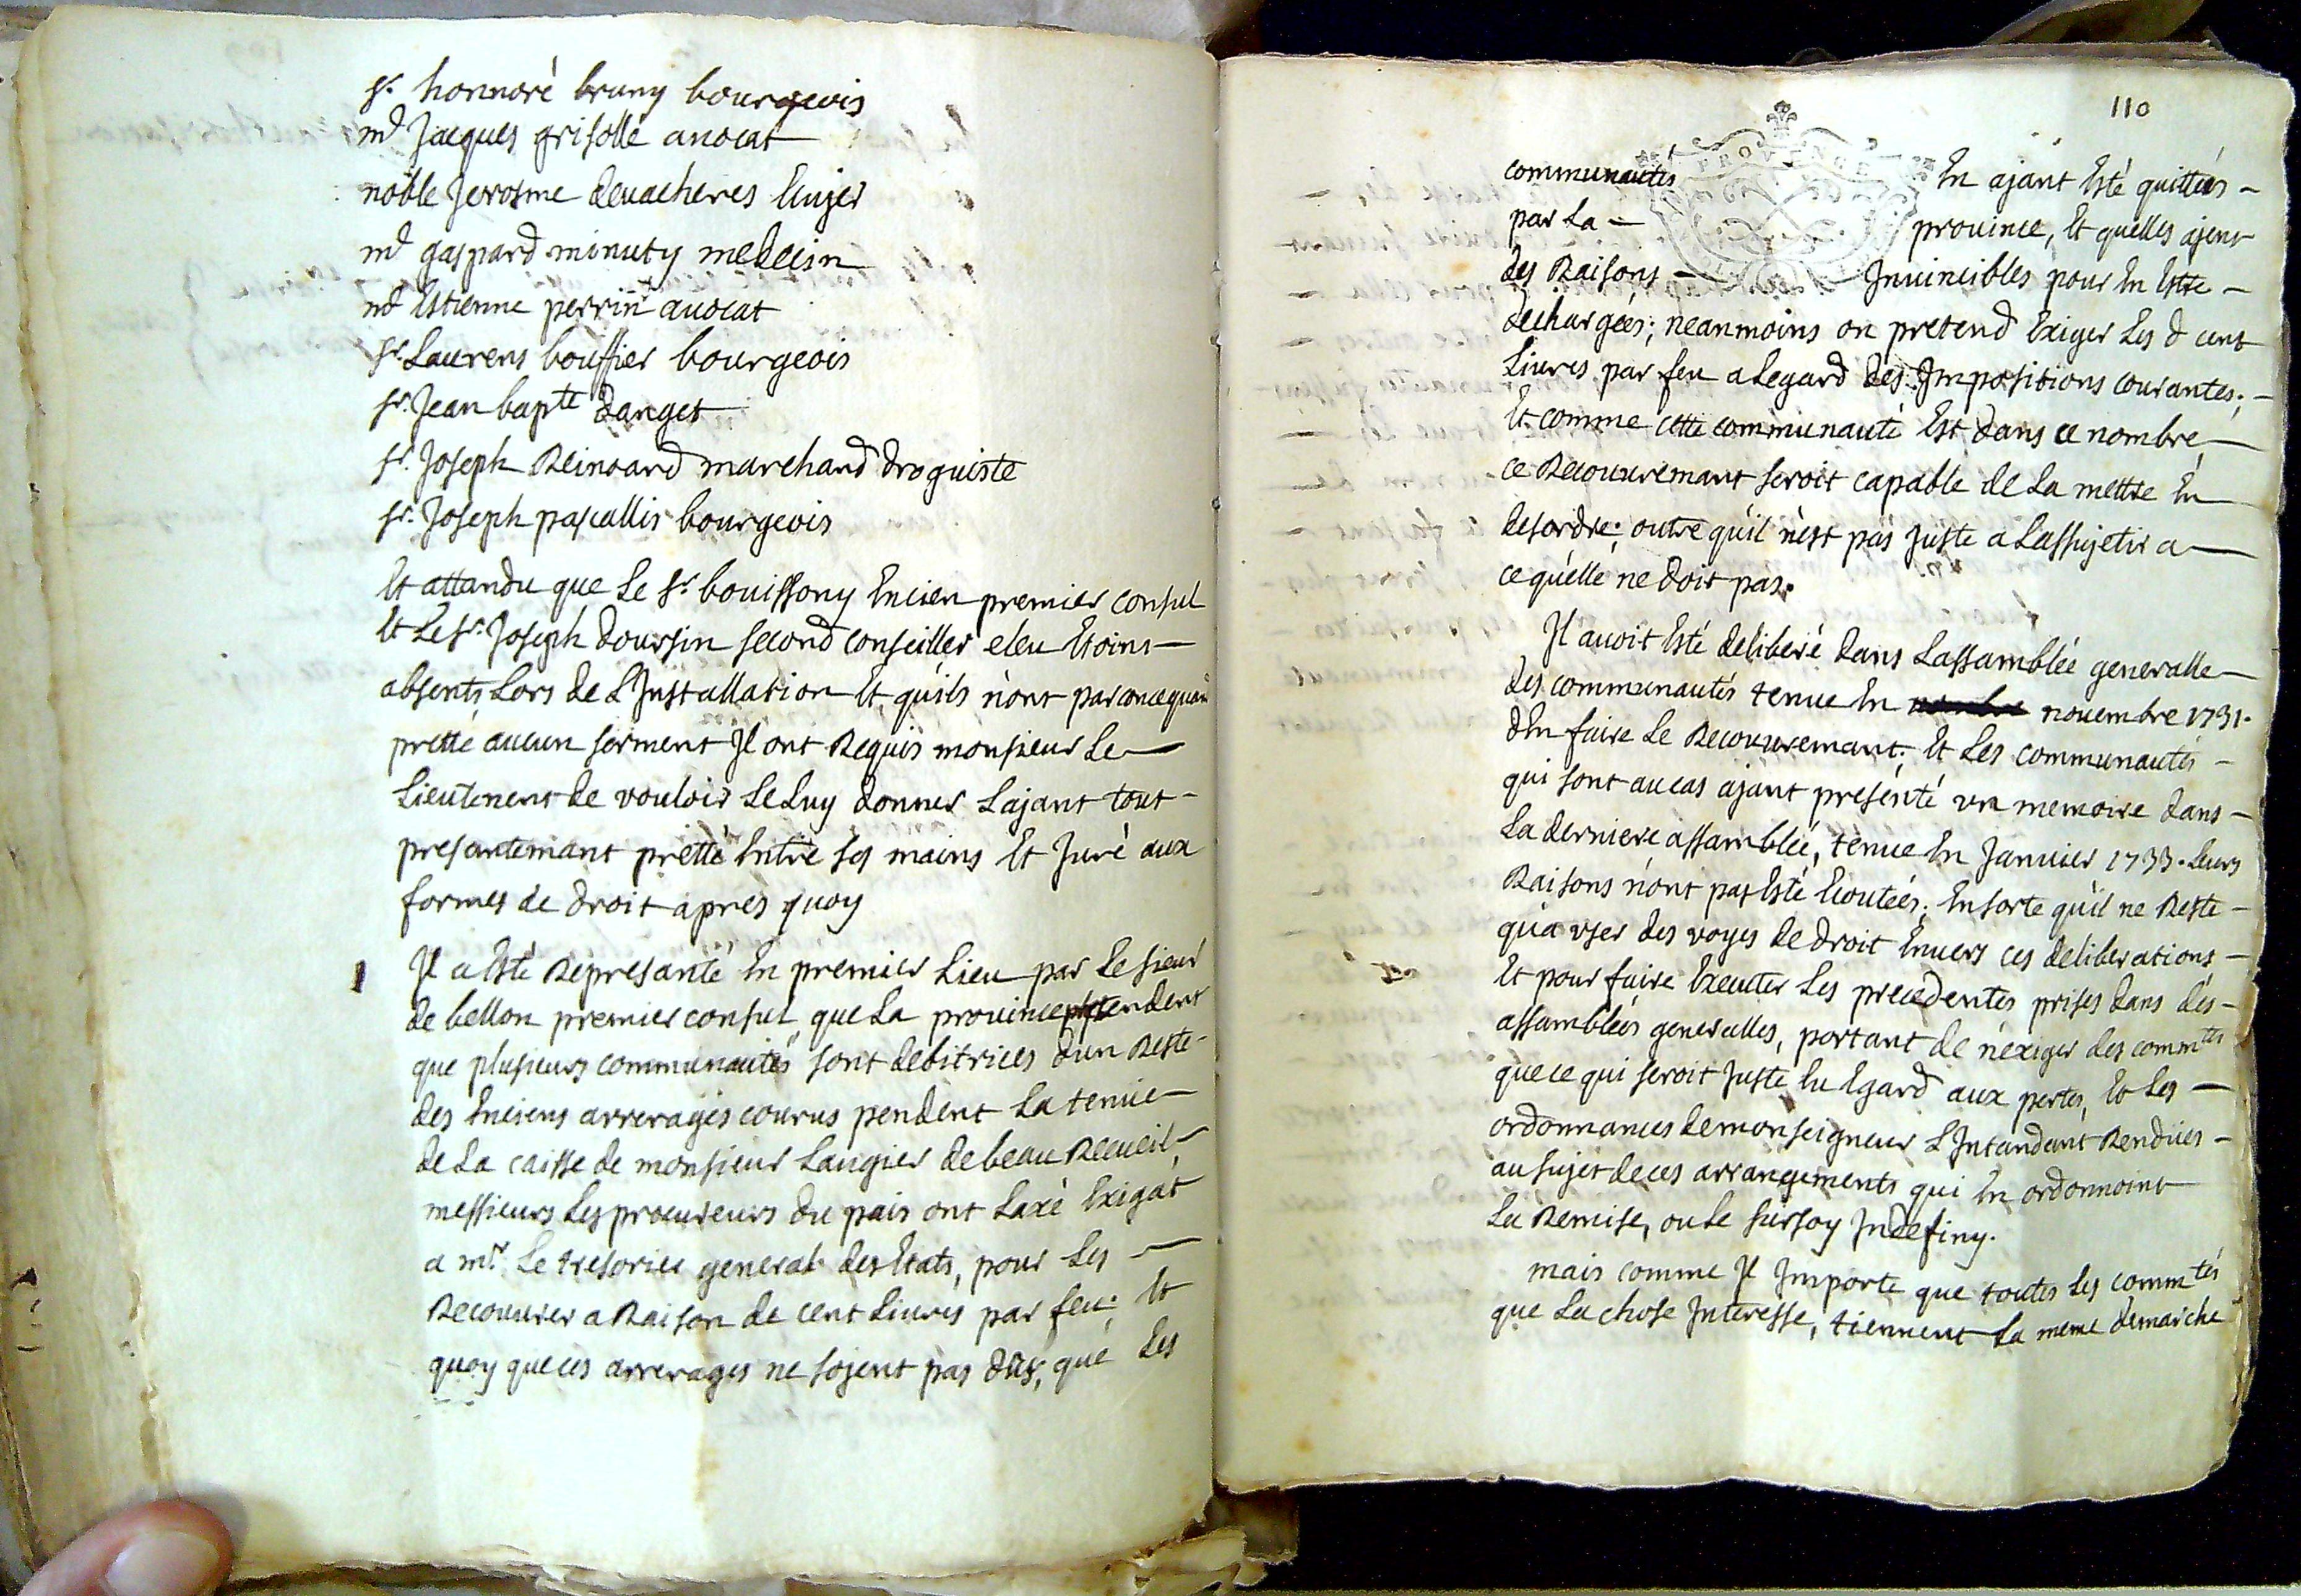 sr. honnoré bruny bourgeois
me Jacques grisolle avocat
noble Jerosme devacheres Ecuyer
me gaspard minuty medecin
me Estienne perrin avocat
sr. Laurens bouffier bourgeois
sr. Jean bapte danget
sr. Joseph Reinoard marchand droguiste
sr. Joseph pascallis bourgeois
Et attandu que Le sr. bouissony Encien premier consul
Et Le sr. Joseph doursin second conseiller eleu Etoint
absents Lors de L'Installation Et qu'ils n'ont par concequant
pretté aucun serment Il ont Requis monsieur Le
Lieutenent de vouloir Le Luy donner Lajant tout
presentemant pretté Entre ses mains Et Juré aux
formes de droit apres quoy
Il a Esté Represanté En premier Lieu par Le sieur
de bellon premier consul que La province pretendent
que plusieurs communautés sont debitrices dun Reste
des Enciens arrerages courus pendent La tenue
de La caisse de monsieur Laugier de beau Recueil,
messieurs Les procureurs du pais ont Laxé Exigat
a mr. Le tresorier general des Etats, pour Les
Recouvrer a Raison de cent Livres par feu; Et
quoy que ces arrerages ne sojent pas dus, que Les
110
PROVENCE
communautés En ajant Esté quittées
par La province, Et quelles ajent
des Raisons Invincibles pour En Estre
dechargées; neanmoins on pretend Exiger Les d cent
Livres par feu a Legard des Impositions courantes;
Et comme cette communauté Est dans ce nombre,
ce Recouvremant seroit capable de La mettre En
desordre; outre qu'il n'est pas Juste a Lassujetir a
ce qu'elle ne doit pas.
Il avoit Esté deliberé dans Lassamblée generalle
des communautés tenue En novembre 1731.
dEn faire Le Recouvremant; Et Les communautés
qui sont au cas ajant presenté un memoire dans
La derniere assamblée, tenue En Janvier 1733. Leurs
Raisons n'ont pas Esté Ecoutées; En sorte qu'il ne Reste
qu'a user des voyes de droit Envers ces deliberations
Et pour faire Executer Les precedentes prises dans des
assamblées generalles, portant de n'exiger des commtés
que ce qui seroit Juste Eu Egard aux pertes, Et Les
ordonnances de monseigneur L'Intandant Rendües
au sujet de ces arrangements qui En ordonnoint
La Remise, ou Le sursoy Indefiny.
mais comme Il Importe que toutes Les commtés
que La chose Interesse, tiennent La meme demarche